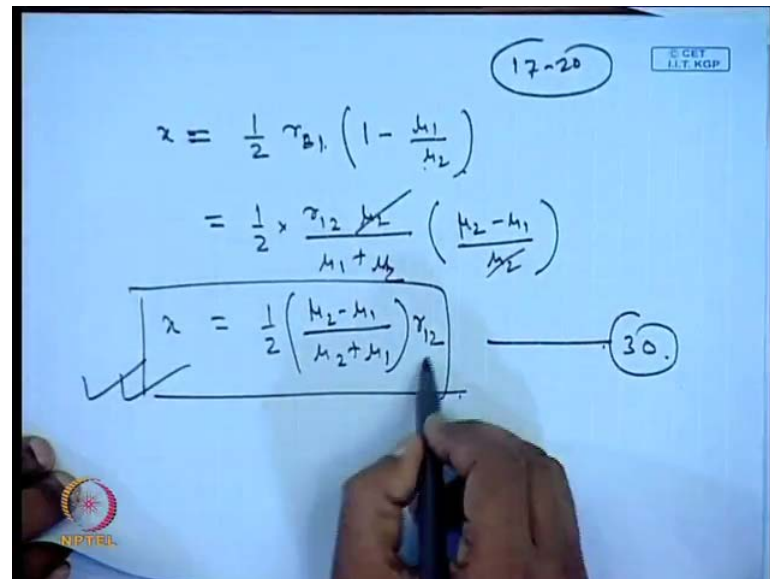 17-20
© CET
I.I.T. KGP
x = 1/2 r_B1 (1 - μ1/μ2)
= 1/2 × (r_12 μ2)/(μ1 + μ2) ((μ2 - μ1)/μ2)
x = 1/2 ((μ2 - μ1)/(μ2 + μ1)) r_12 —— 30.
NPTEL